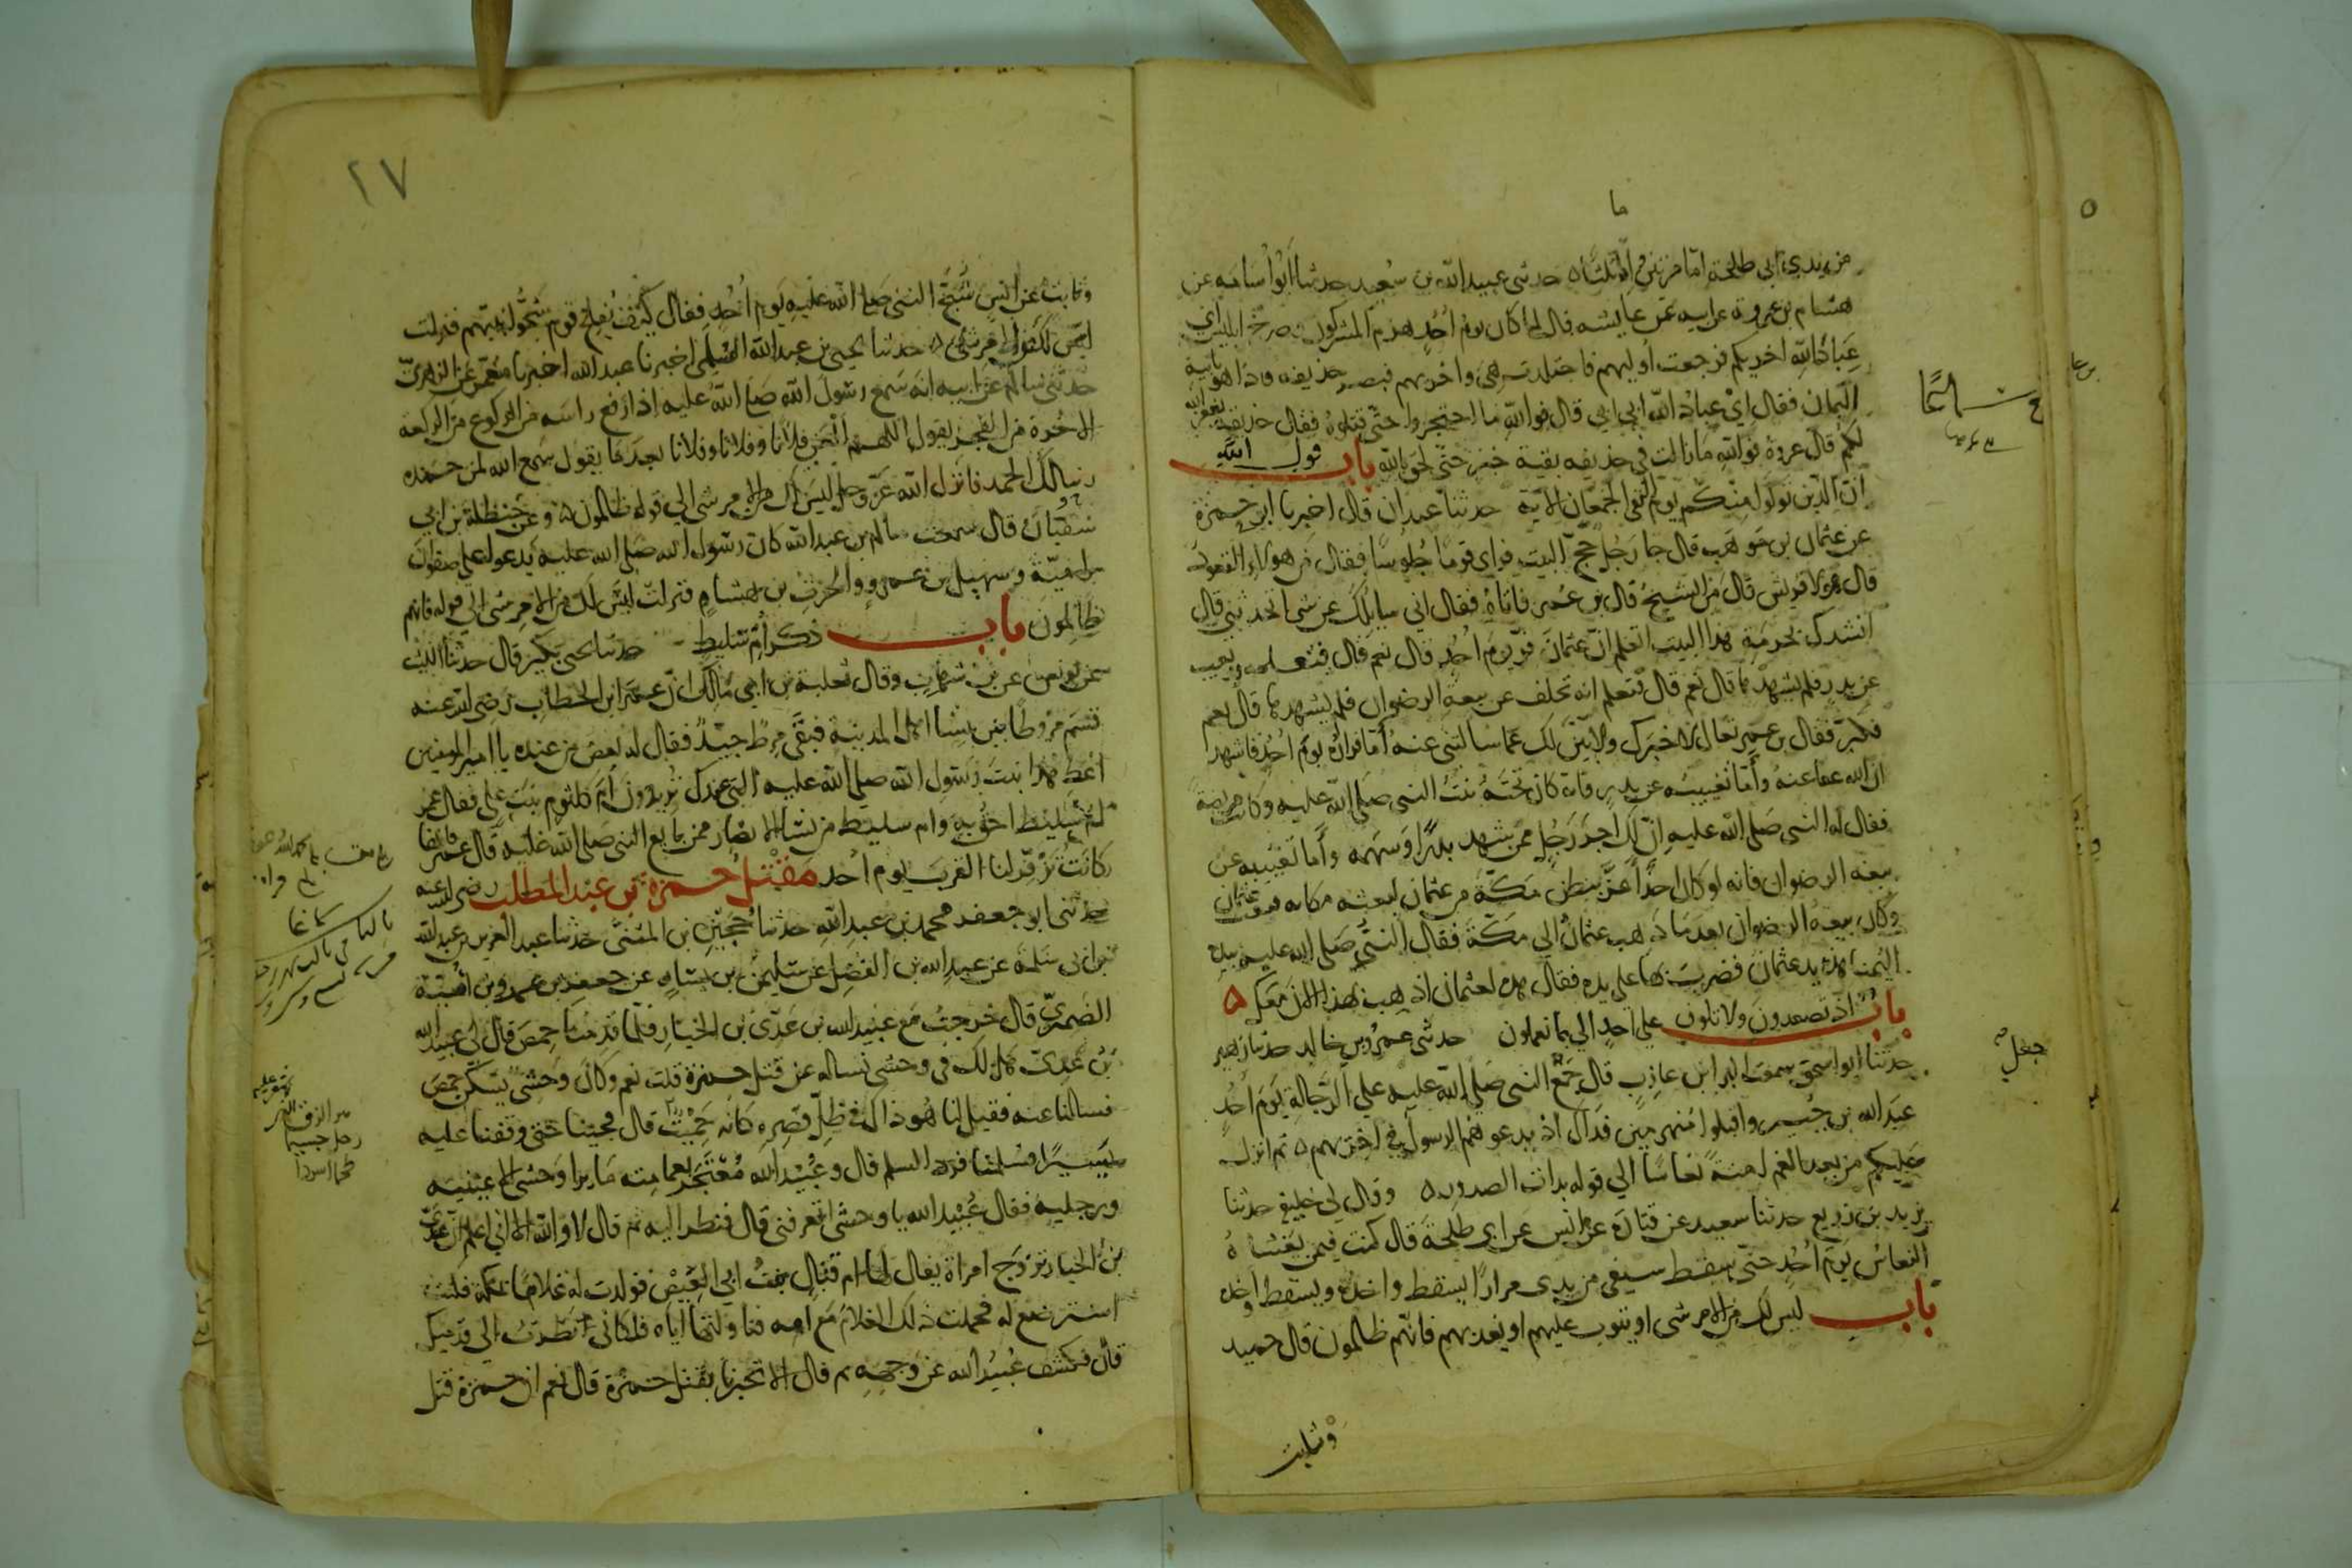 من يدي ابي طلحة اما مرتين واما ثلثا ه حدثني عبيد الله بن سعيد حدثنا ابو اسامه عن
هشام بن عروة عن ابيه عن عايشه قال لما كان يوم احد هزم المشركون صرخ ابليس اي
عباد الله اخريكم فرجعت اوليهم فاجتلدت هي واخريهم فبصر حذيفه فاذا هو بابيه
اليمان فقال اي عباد الله ابي ابي قال فوالله ما احتجروا حتى قتلوه فقال حذيفه يغفر الله
لكم قال عروة فوالله مازالت في حذيفه بقية خير حتى لحق بالله باب قول الله
ان الذين تولوا منكم يوم التقى الجمعان الاية حدثنا عبدان قال اخبرنا ابو حمزة
عن عثمان بن موهب قال جا رجل حج البيت فراى قوما جلوسا فقال من هولاء القعود
قال هولا قريش قال من الشيخ قال بن عمر فاتاه فقال اني سايلك عن شى اتحدثني قال
انشدك بحرمة هذا البيت اتعلم ان عثمان فر يوم احد قال نعم قال فتعلمه تغيب
عن بدر فلم يشهدها قال نعم قال فتعلم انه تخلف عن بيعة الرضوان فلم يشهدها قال نعم
فكبر فقال بن عمر تعال لاخبرك ولابين لك عما سالتني عنه اما فراره يوم احد فاشهد
ان الله عفا عنه واما تغيبه عن بدر فانه كان تحته بنت النبي صلى الله عليه وكانت مريضة
فقال له النبي صلى الله عليه ان لك اجر رجل ممن شهد بدرا وسهمه واما تغيبه عن
بيعة الرضوان فانه لو كان احدا اعز ببطن مكة من عثمان لبعثه مكانه فبعث عثمان
وكان بيعة الرضوان بعدما ذهب عثمان الي مكة فقال النبي صلى الله عليه بيده
اليمنى هذه يد عثمان فضرب بها على يده فقال هذه لعثمان اذهب بهذا الان معك ه
باب اذ تصعدون ولا تلون على احد الي بما تعملون حدثني عمرو بن خالد حدثنا زهير
حدثنا ابو اسحق سمعت البرا بن عازب قال جعل النبي صلى الله عليه على الرجالة يوم احد
عبد الله بن جبير واقبلوا منهزمين فذاك اذ يدعوهم الرسول في اخريهم ه ثم انزل
عليكم من بعد الغم امنة نعاسا الي قوله بذات الصدور ه وقال لي خليفة حدثنا
يزيد بن زريع حدثنا سعيد عن قتادة عن انس عن ابي طلحة قال كنت فيمن تغشاه
النعاس يوم احد حتى سقط سيفي من يدي مرارا يسقط واخذه ويسقط واخذه
باب ليس لك من الامر شى او يتوب عليهم او يعذبهم فانهم ظالمون قال حميد
وثابت
جعل
٢٧
وثابت عن انس شج النبي صلى الله عليه يوم احد فقال كيف يفلح قوم شجوا نبيهم فنزلت
ليس لك من الامر شى ه حدثنا يحيى بن عبد الله السلمي اخبرنا عبد الله اخبرنا معمر عن الزهري
حدثني سالم عن ابيه انه سمع رسول الله صلى الله عليه اذا رفع راسه من الركوع من الركعة
الاخرة من الفجر يقول اللهم العن فلانا وفلانا وفلانا بعدما يقول سمع الله لمن حمده
ربنا لك الحمد فانزل الله عز وجل ليس لك من الامر شى الي قوله ظالمون ه وعن حنظلة بن ابي
سفيان قال سمعت سالم بن عبد الله كان رسول الله صلى الله عليه يدعو على صفوان
بن امية وسهيل بن عمرو والحرث بن هشام فنزلت ليس لك من الامر شى الي قوله فانهم
ظالمون باب ذكر ام سليط حدثنا يحيى بن بكير قال حدثنا الليث
عن يونس عن بن شهاب وقال ثعلبة بن ابي مالك ان عمر ابن الخطاب رضى الله عنه
قسم مروطا بين نسا اهل المدينة فبقى مرط جيد فقال له بعض من عنده يا امير المومنين
اعط هذا بنت رسول الله صلى الله عليه التي عندك يريدون ام كلثوم بنت علي فقال عمر
ام سليط احق به وام سليط من نسا الانصار ممن بايع النبي صلى الله عليه قال عمر فانها
كانت تزفر لنا القرب يوم احد مقتل حمزة بن عبد المطلب رضى الله عنه
حدثني ابو جعفر محمد بن عبد الله حدثنا حجين بن المثنى حدثنا عبد العزيز بن عبد الله
بن ابي سلمة عن عبد الله بن الفضل عن سليمن بن يسار عن جعفر بن عمرو بن امية
الضمري قال خرجت مع عبيد الله بن عدي بن الخيار فلما قدمنا حمص قال لي عبيد الله
بن عدي هل لك في وحشى نساله عن قتل حمزة قلت نعم وكان وحشى يسكن حمص
فسالنا عنه فقيل لنا هو ذاك في ظل قصره كانه حميت قال فجينا حتى وقفنا عليه
يسيرا فسلمنا فرد السلم قال وعبيد الله معتجر بعمامته ما يرا وحشى الا عينيه
ورجليه فقال عبيد الله يا وحشى اتعرفني قال فنظر اليه ثم قال لا والله الا اني اعلم ان عدي
بن الخيار تزوج امراة يقال لها ام قتال بنت ابي العيص فولدت له غلاما بمكة فكنت
استرضع له فحملت ذلك الغلام مع امه فناولتها اياه فلكاني نظرت الي قدميك
قال فكشف عبيد الله عن وجهه ثم قال الا تخبرنا بقتل حمزة قال نعم ان حمزة قتل